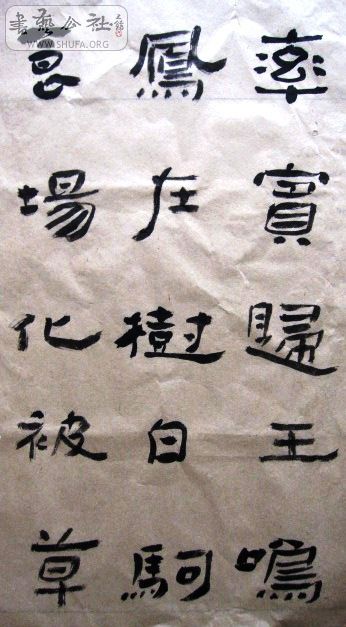 率賓歸王鳴
鳳在樹白駒
食場化被草
書藝公社
WWW.SHUFA.ORG